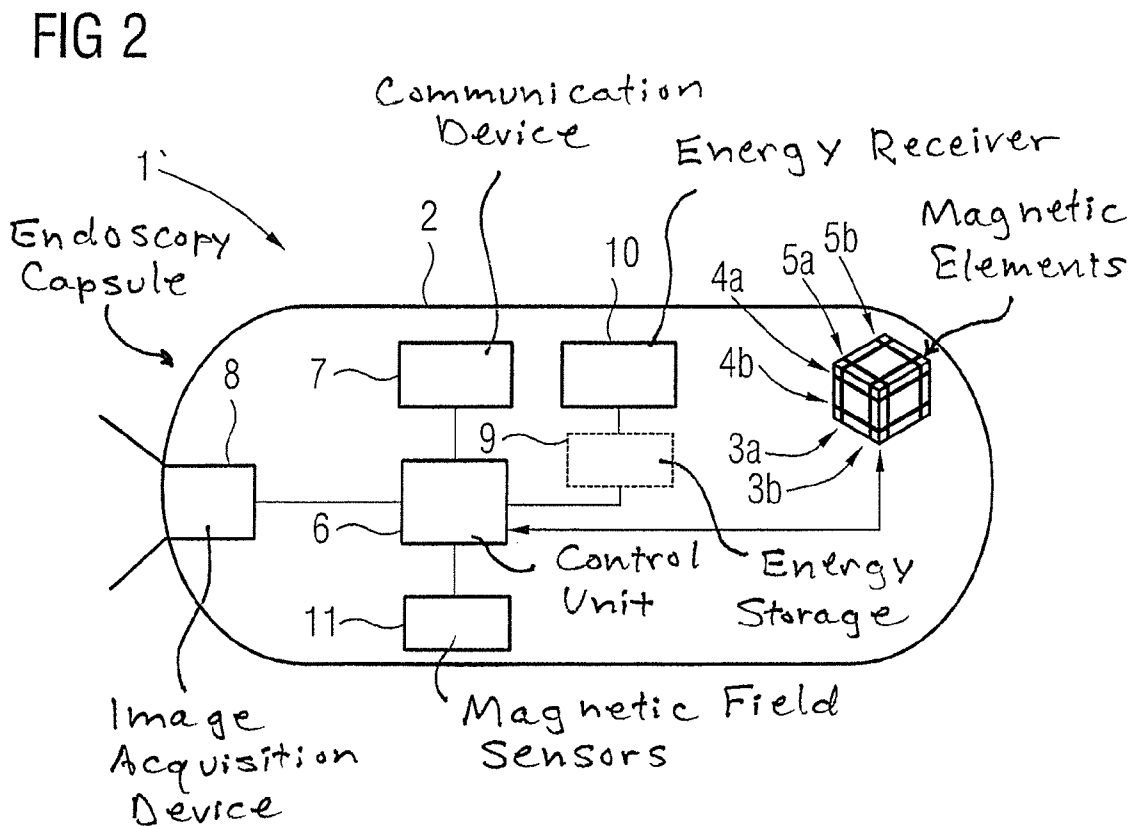 FIG 2
Communication
Device
Energy Receiver
1'
Endoscopy
Capsule
2
10
Magnetic
Elements
5b
5a
4a
4b
3a
3b
7
8
9
6
11
Control
Unit
Energy
Storage
Image
Acquisition
Device
Magnetic Field
Sensors